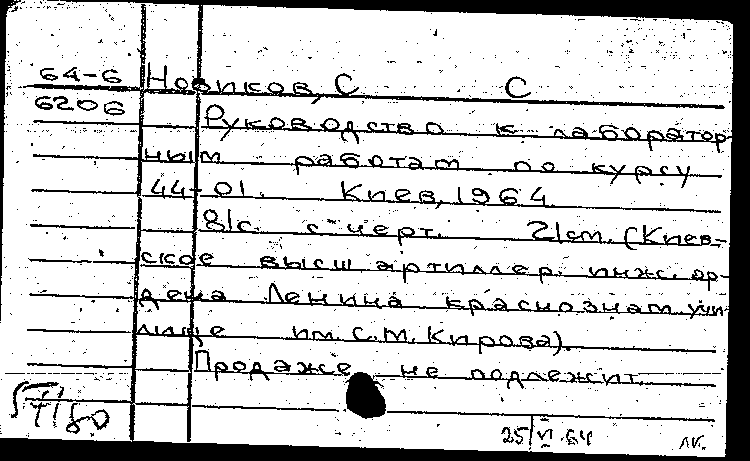 64-6 Новиков, С С
6206 Руководство к лаборатор-
ным работам по курсу
44-01. Киев, 1964
81с. с черт. 21см. (Киев-
ское высш артиллер. инж. ор-
дена Ленина краснознам. учи
лище им. С.М. Кирова).
Продаже не подлежит.
25/VI 64 лк.